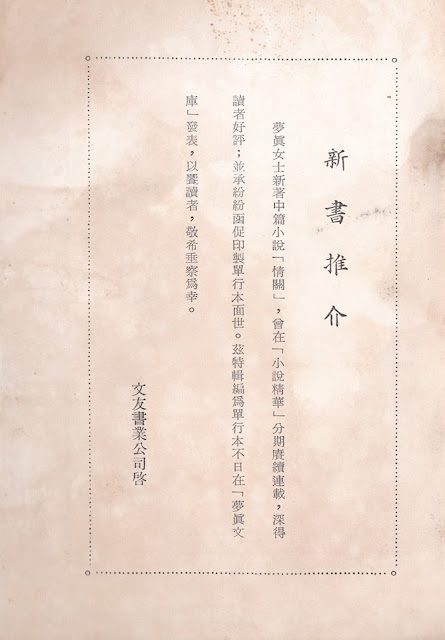 新書推介
夢眞女士新著中篇小說「情關」，曾在「小說精華」分期賡續連載，深得
讀者好評；並承紛紛函促印製單行本面世。茲特輯編爲單行本不日在「夢眞文
庫」發表，以饗讀者，敬希垂察爲幸。
文友書業公司啓